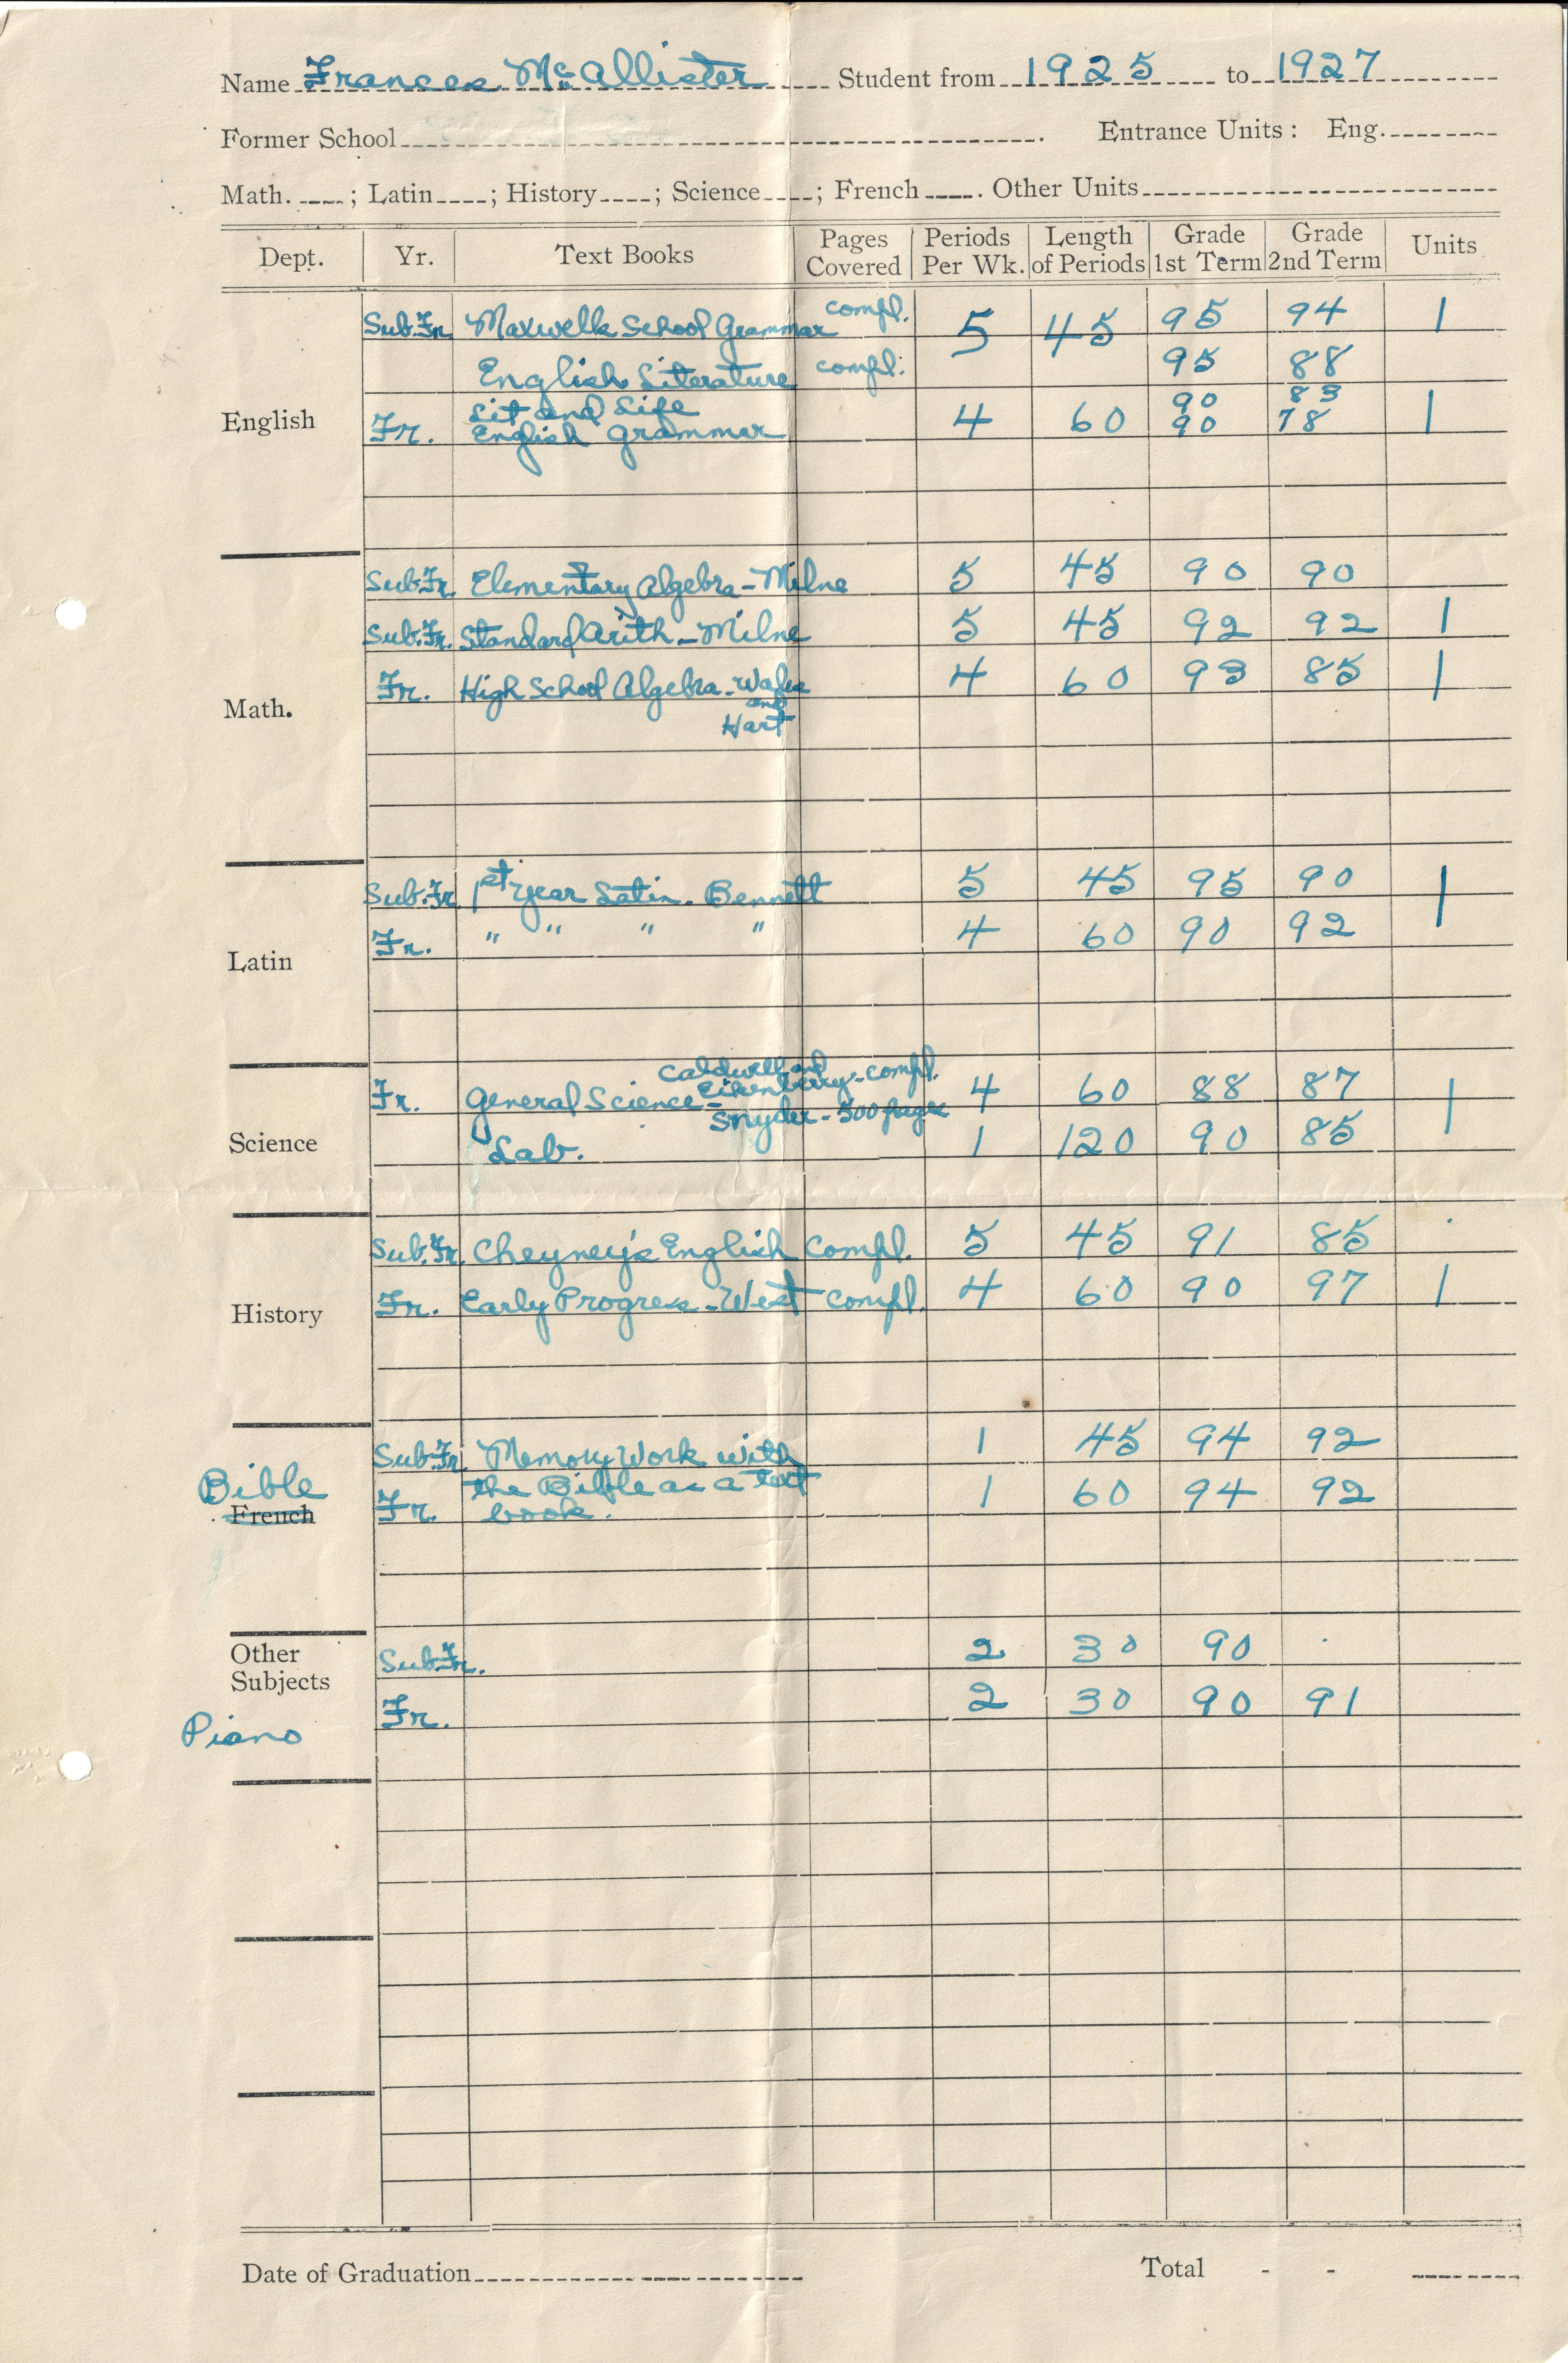 Name Frances McAllister Student from 1925 to 1927
Former School . Entrance Units : Eng.
Math. ; Latin ; History ; Science ; French . Other Units
Dept. Yr. Text Books Pages Covered Periods Per Wk. Length of Periods Grade 1st Term Grade 2nd Term Units
English
Sub.Fr. Maxwells School Grammar compl. 5 45 95 94 1
English Literature compl. 95 88
Fr. Lit and Life 90 83
English Grammar 4 60 90 78 1
Math.
Sub.Fr. Elementary Algebra - Milne 5 45 90 90
Sub.Fr. Standard Arith - Milne 5 45 92 92 1
Fr. High School Algebra - 4 60 93 85 1
and
Hart
Latin
Sub.Fr. 1st year Latin. Bennett 5 45 95 90 1
Fr. " " " " 4 60 90 92
Science
Caldwell and
Fr. General Science - Eikenberry - compl. 4 60 88 87 1
Snyder - 500 pages
Lab. 1 120 90 85
History
Sub.Fr. Cheyney's English Compl. 5 45 91 85
Fr. Early Progress - West compl. 4 60 90 97 1
Bible
French
Sub.Fr. Memory Work with 1 45 94 92
Fr. the Bible as a text 1 60 94 92
book.
Other
Subjects
Piano
Sub.Fr. 2 30 90
Fr. 2 30 90 91
Date of Graduation Total - -